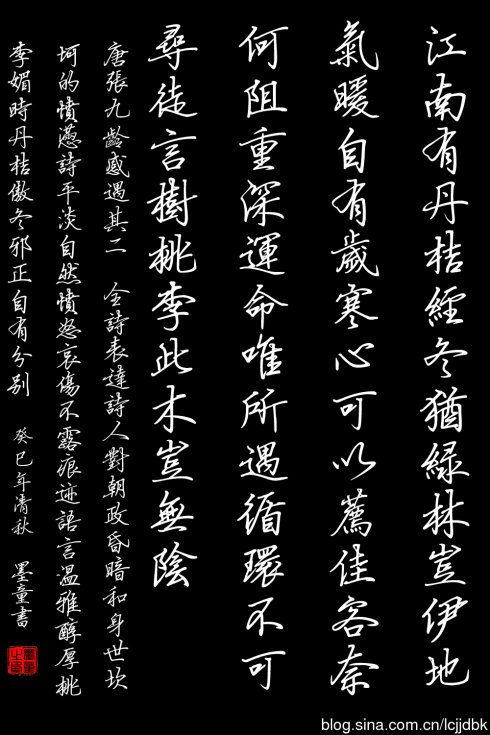 江南有丹桔經冬猶綠林豈伊地
氣暖自有歲寒心可以薦佳客奈
何阻重深運命唯所遇循環不可
尋徒言樹桃李此木豈無陰
唐張九齡感遇其二 全詩表達詩人對朝政昏暗和身世坎
坷的憤懣詩平淡自然憤怒哀傷不露痕迹語言溫雅醇厚桃
李媚時丹桔傲冬邪正自有分别 癸巳年清秋 墨童書
blog.sina.com.cn/lcjjdbk